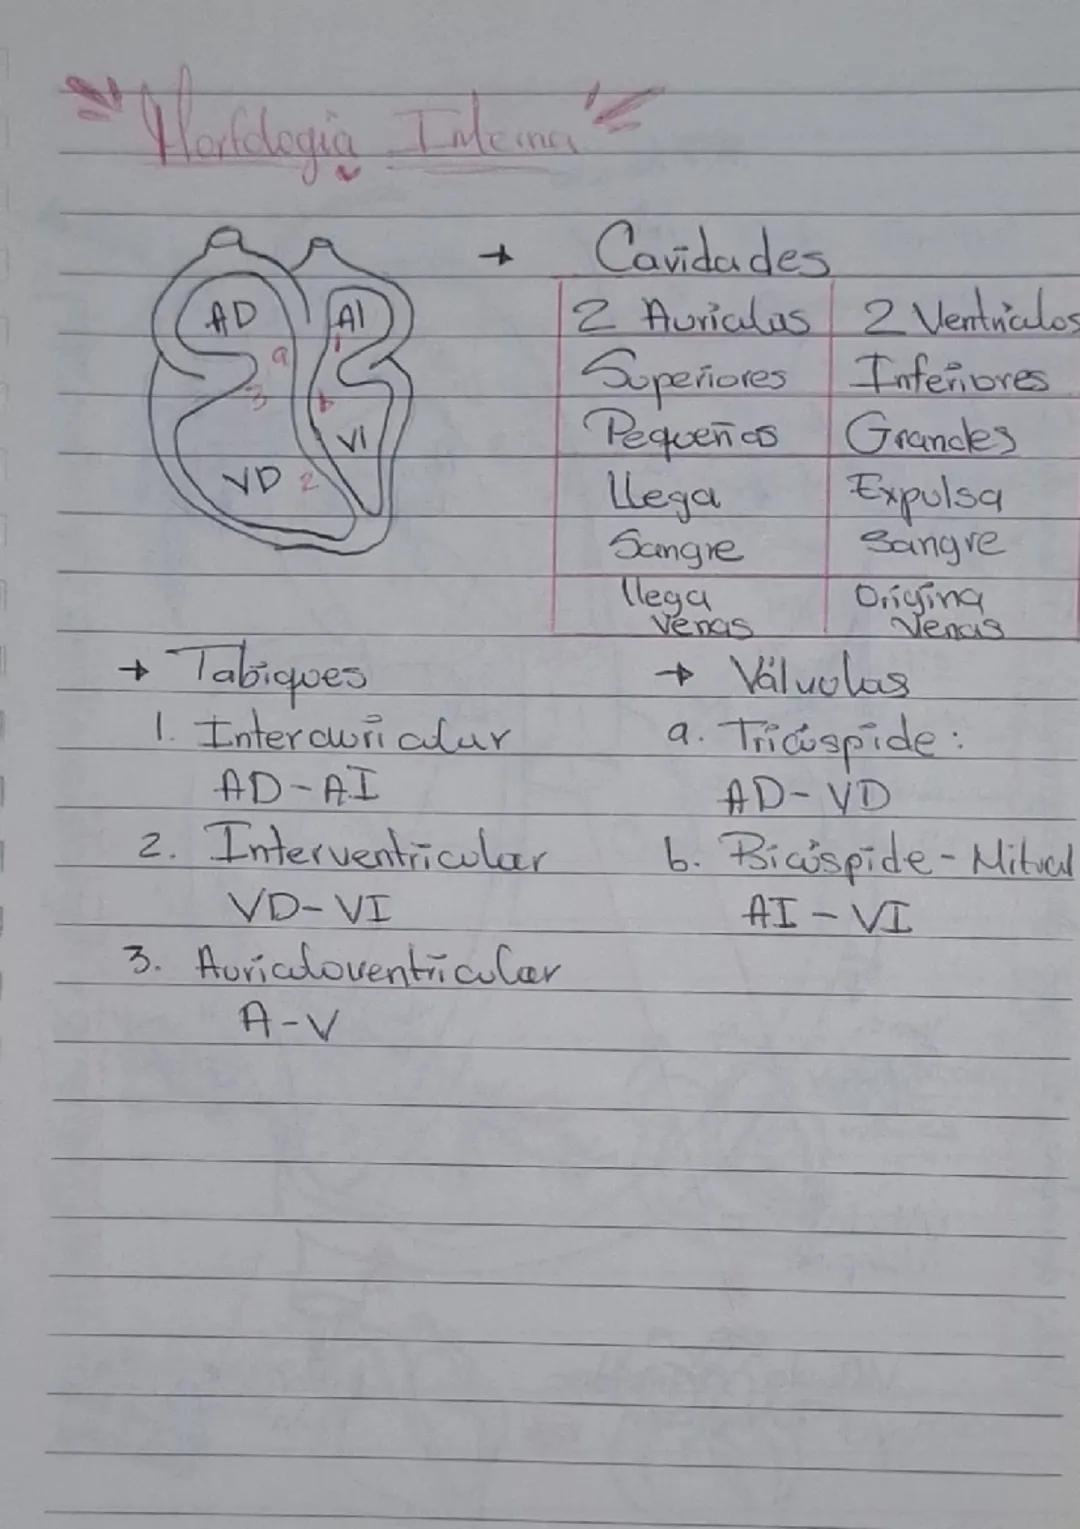 Morfología Interna
→ Cavidades
2 Aurículas 2 Ventrículos
Superiores Inferiores
Pequeños Grandes
Llega Expulsa
Sangre Sangre
llega Origina
Venas Venas
AD AI
a 1
3 b
VI
VD 2
→ Tabiques
1. Interauricular
AD-AI
2. Interventricular
VD-VI
3. Auriculoventricular
A-V
→ Válvulas
a. Tricúspide:
AD-VD
b. Bicúspide-Mitral
AI-VI